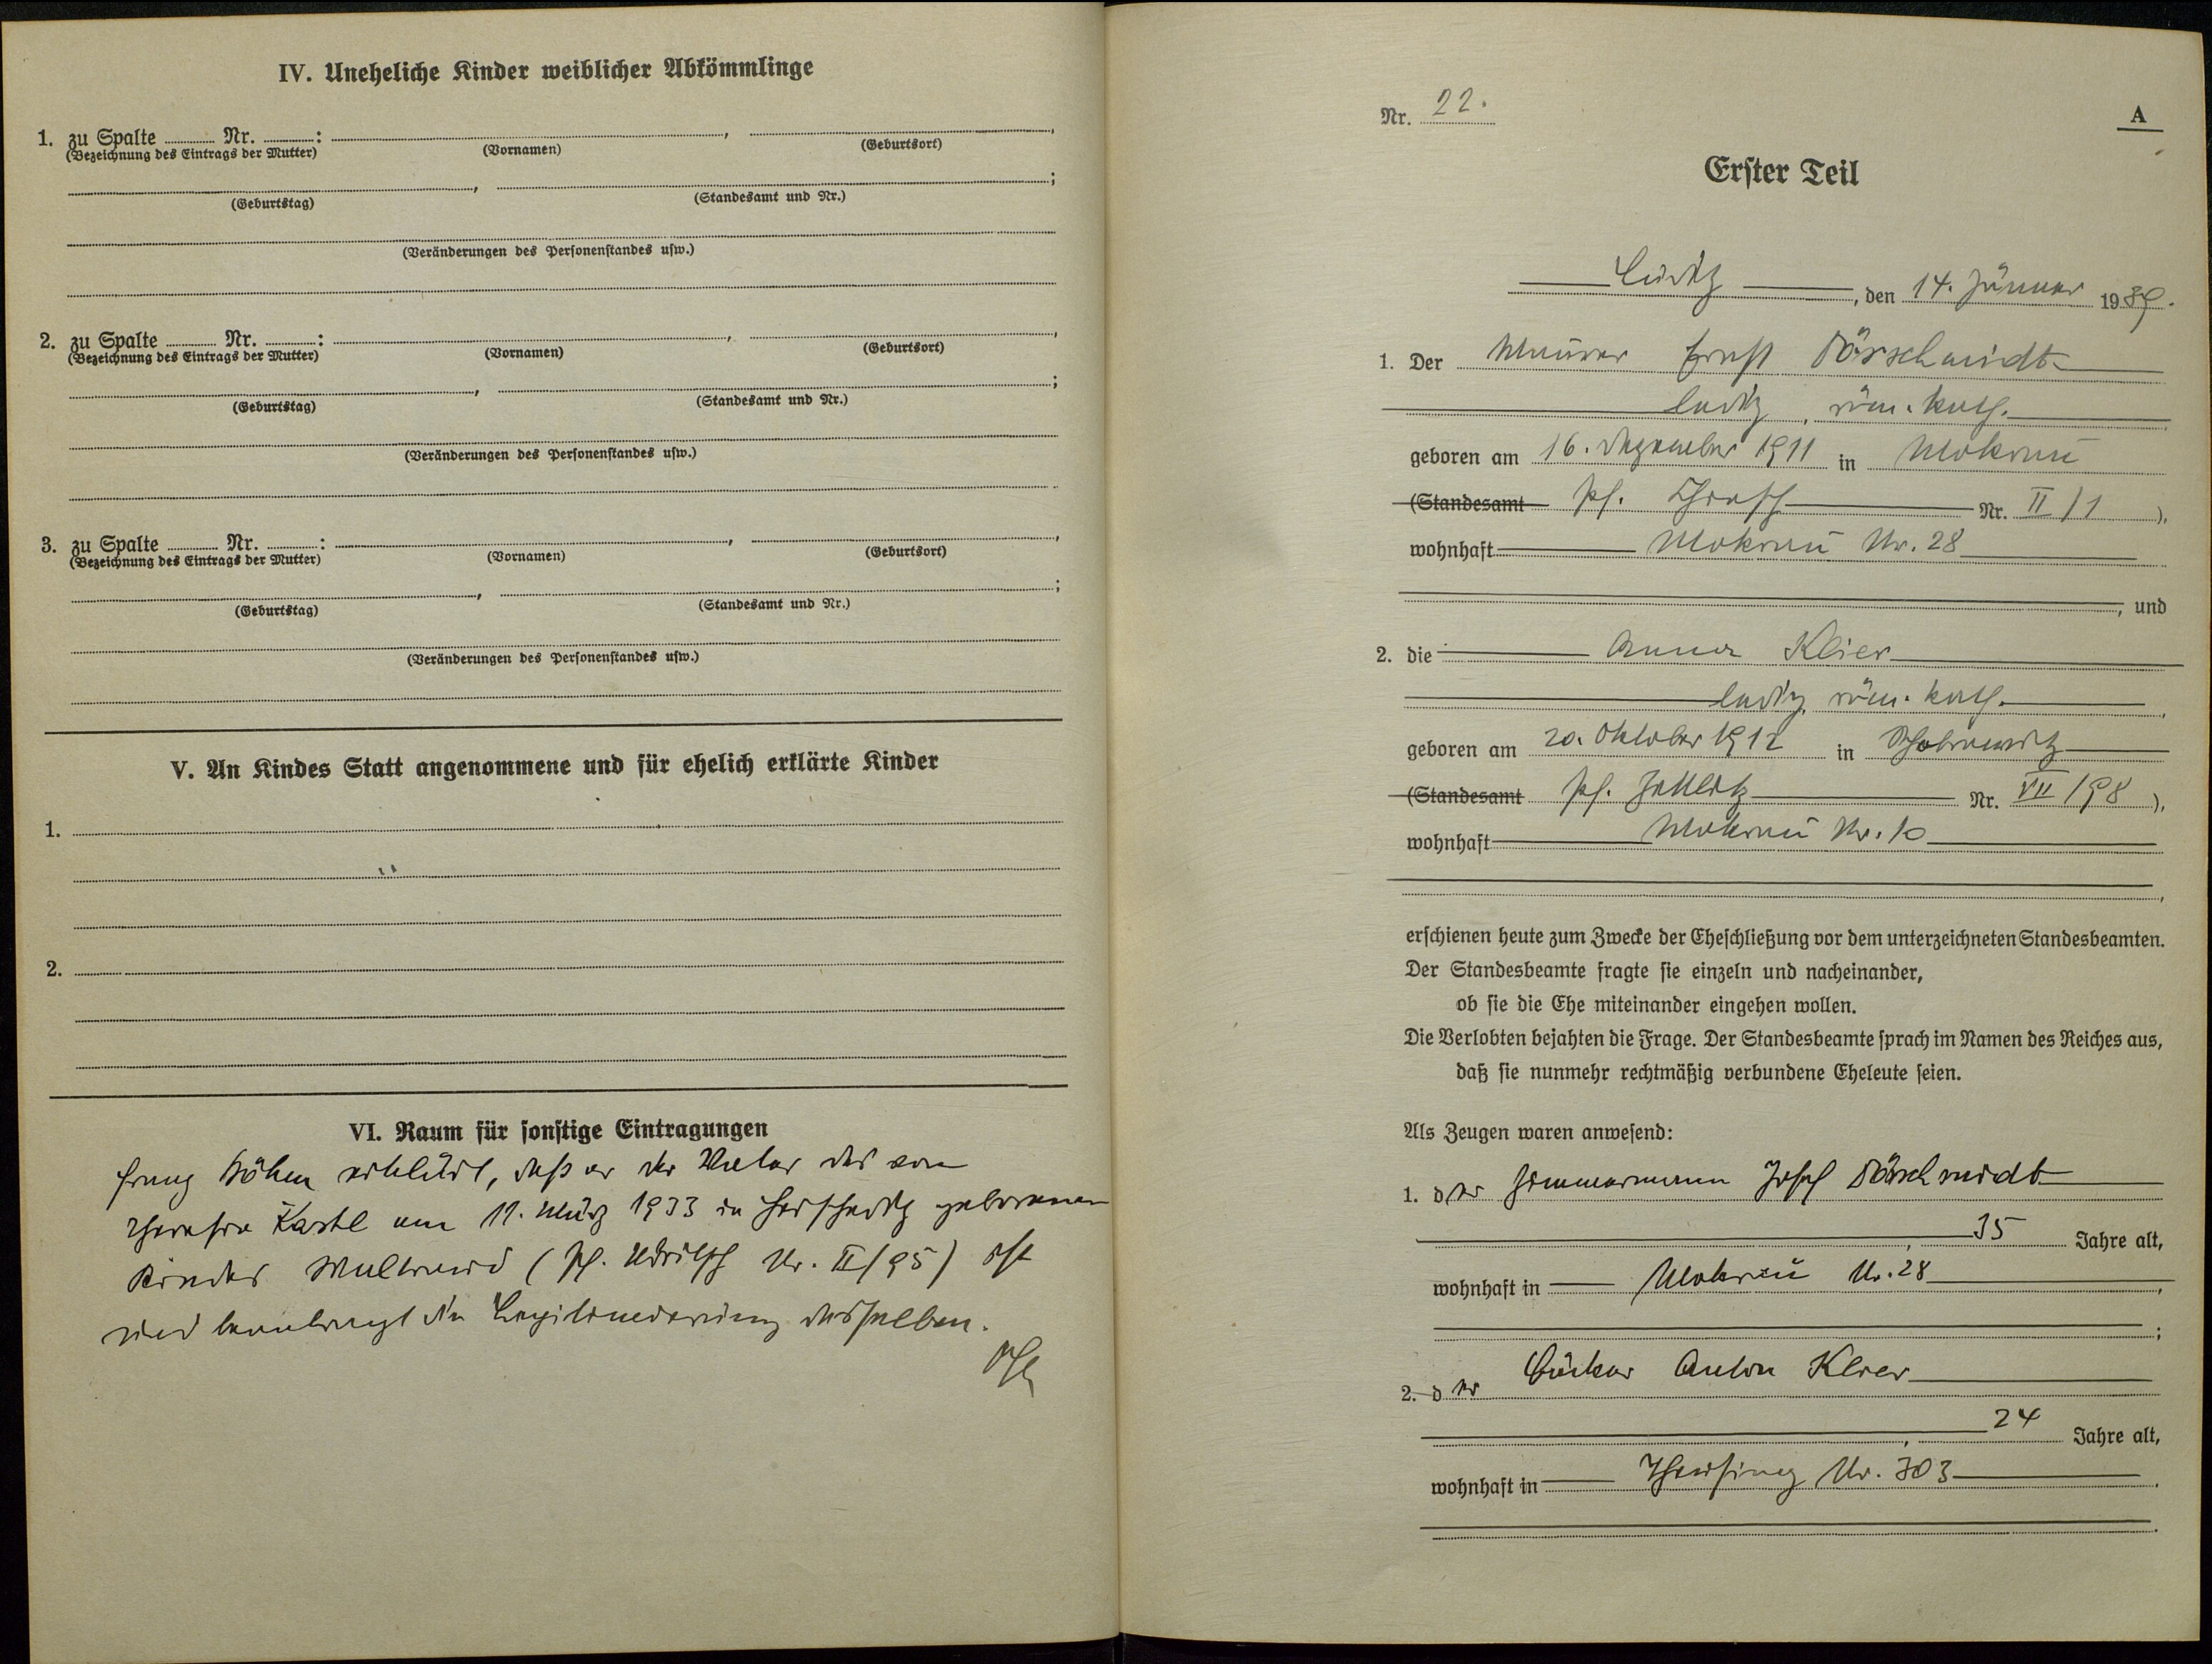 IV. Uneheliche Kinder weiblicher Abkömmlinge
1. zu Spalte ........ Nr. ........: ........, ........,
(Bezeichnung des Eintrags der Mutter) (Vornamen) (Geburtsort)
(Geburtstag) (Standesamt und Nr.)
(Veränderungen des Personenstandes usw.)
2. zu Spalte ........ Nr. ........: ........, ........,
(Bezeichnung des Eintrags der Mutter) (Vornamen) (Geburtsort)
(Geburtstag) (Standesamt und Nr.)
(Veränderungen des Personenstandes usw.)
3. zu Spalte ........ Nr. ........: ........, ........,
(Bezeichnung des Eintrags der Mutter) (Vornamen) (Geburtsort)
(Geburtstag) (Standesamt und Nr.)
(Veränderungen des Personenstandes usw.)
V. An Kindes Statt angenommene und für ehelich erklärte Kinder
1.
2.
VI. Raum für sonstige Eintragungen
Franz Böhm erklärt, daß er der Vater des von
Theresia Kastl am 11. März 1933 in geborenen
Kindes Waltraud (Pf. Udritsch Nr. II/95) ist
und beantragt die Legitimierung desselben.
Nr. 22. A
Erster Teil
Luditz, den 14. Jänner 1939.
1. Der Maurer Ernst Dörschmidt
ledig, röm. kath.
geboren am 16. Dezember 1911 in Mokrau
(Standesamt Pf. Nr. II/1),
wohnhaft Mokrau Nr. 28
, und
2. die Anna Klier
ledig, röm. kath.
geboren am 20. Oktober 1912 in
(Standesamt Pf. Zettlitz Nr. VII/98),
wohnhaft Mokrau Nr. 10
erschienen heute zum Zwecke der Eheschließung vor dem unterzeichneten Standesbeamten.
Der Standesbeamte fragte sie einzeln und nacheinander,
ob sie die Ehe miteinander eingehen wollen.
Die Verlobten bejahten die Frage. Der Standesbeamte sprach im Namen des Reiches aus,
daß sie nunmehr rechtmäßig verbundene Eheleute seien.
Als Zeugen waren anwesend:
1. der Zimmermann Josef Dörschmidt
, 35 Jahre alt,
wohnhaft in Mokrau Nr. 28,
;
2. der Bäcker Anton Klier
, 24 Jahre alt,
wohnhaft in Theusing Nr. 303.